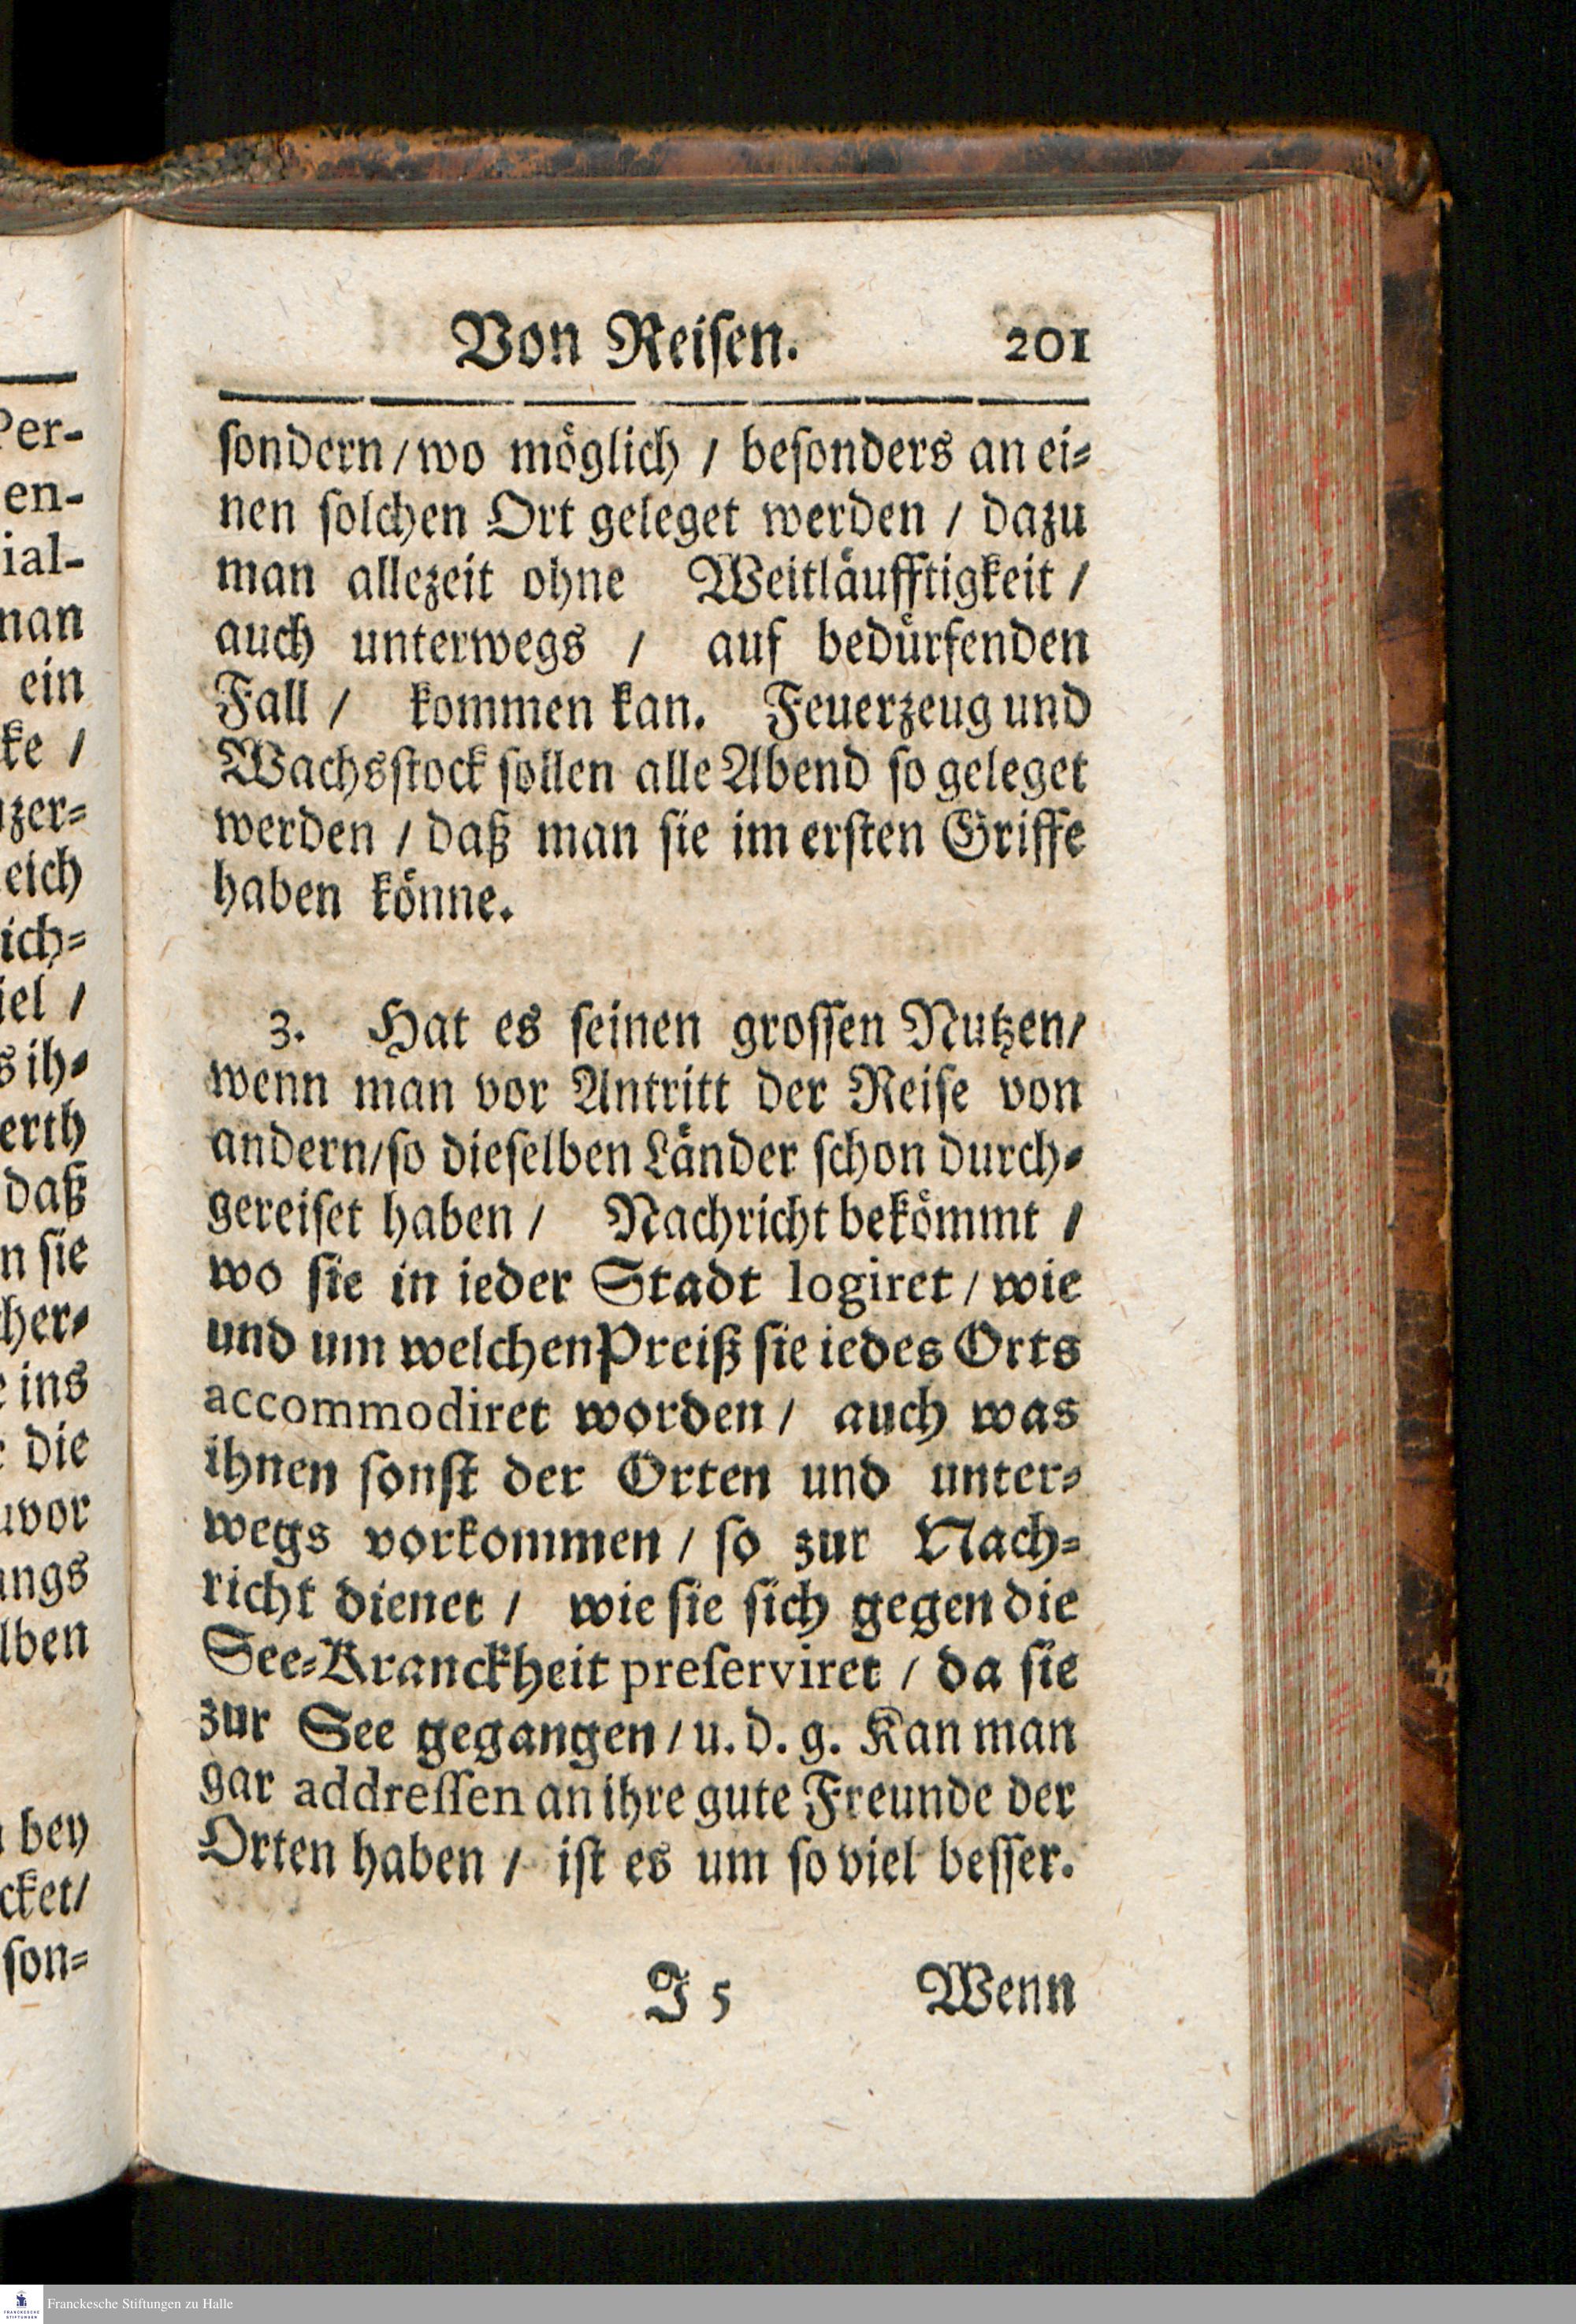 Von Reisen. 201
sondern/wo möglich / besonders an ei-
nen solchen Ort geleget werden / dazu
man allezeit ohne Weitläufftigkeit /
auch unterwegs / auf bedürfenden
Fall / kommen kan. Feuerzeug und
Wachsstock sollen alle Abend so geleget
werden / daß man sie im ersten Griffe
haben könne.
3. Hat es seinen grossen Nutzen/
wenn man vor Antritt der Reise von
andern/so dieselben Länder schon durch-
gereiset haben / Nachricht bekömmt /
wo sie in ieder Stadt logiret / wie
und um welchen Preiß sie iedes Orts
accommodiret worden / auch was
ihnen sonst der Orten und unter-
wegs vorkommen / so zur Nach-
richt dienet / wie sie sich gegen die
See-Kranckheit preserviret / da sie
zur See gegangen / u. d. g. Kan man
gar addressen an ihre gute Freunde der
Orten haben / ist es um so viel besser.
J 5 Wenn
Per-
en-
ial-
man
ein
ke /
zer-
eich
ich-
iel /
s ih-
erth
daß
n sie
her-
e ins
die
uvor
ungs
lben
bey
cket/
son-
Franckesche Stiftungen zu Halle